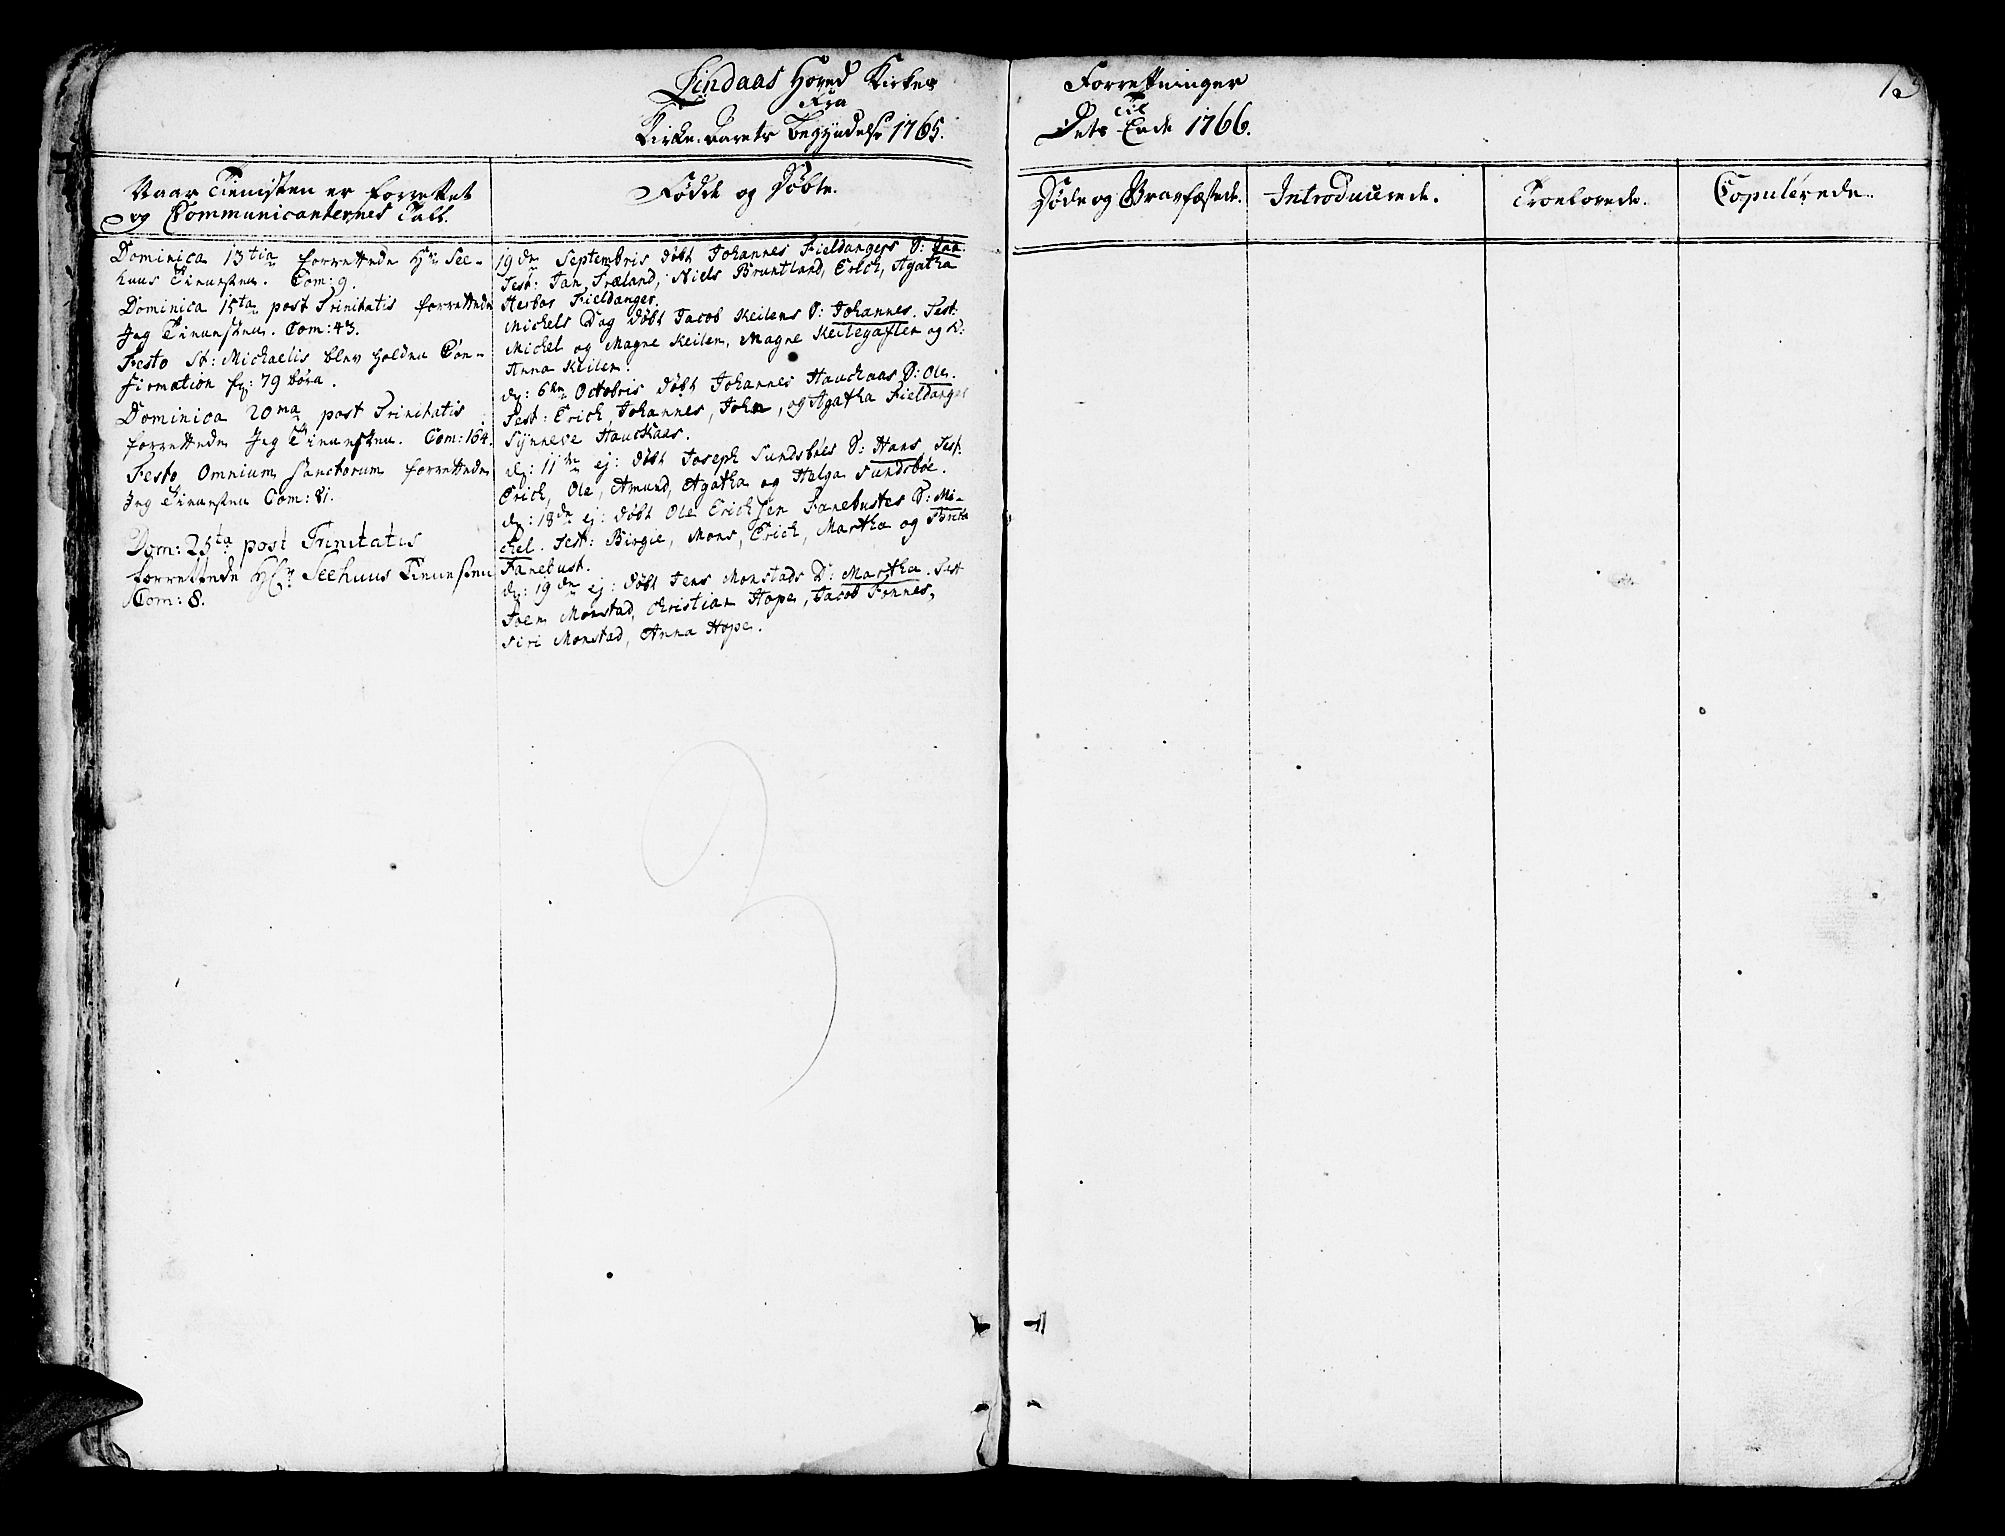 Lindaas Hoved Kirkes Forrettninger
Fra Til
Kirke-Aarets Begyndelse 1765. Dets Ende 1766.
Naar Tienisten er forrettet
og Communicanternes Tall.
Dominica 13tia forrettede Hr See-
huus Tienesten. Com: 9.
Dominica 15ta post Trinitatis forrettede
Jeg Tienesten. Com: 43.
Festo St: Michaelis blev holden Con-
firmation for 79 børn.
Dominica 20ma post Trinitatis
forrettede Jeg Tienesten. Com: 164.
Festo Omnium Sanctorum forrettede
Jeg Tienesten Com: 81.
Dom: 25ta post Trinitatis
forrettede Hr Seehuus Tienesten
Com: 8.
Fødde og Døbte.
19de Septembris døbt Johannes Fieldangers D:
Test: Jan Træland, Niels Bruntland, Erich, Agatha
Herbor Fieldanger.
Michels Dag døbt Jacob Keilens D: Johannes. Test:
Michel og Magne Keilen, Magne Keilegaflen og
Anna Keilen.
d: 6te Octobris døbt Johannes Hauckaas D: Ole.
Test: Erich, Johannes, John, og Agatha Fieldanger
Synneve Hauckaas.
d: 11te ej: døbt Joseph Sundsbøes D: Hans Test:
Erich, Ole, Amund, Agatha og Helga Sundsbøe.
d: 18de ej: døbt Ole Erichsen Fanebustes D: Mi-
chel. Test: Birgie, Mons, Erich, Martha og Brita
Fanebust.
d: 19de ej: døbt Jens Monstads D: Martha. Test
Joen Monstad, Christian Hope, Jacob Fonnes,
Siri Monstad, Anna Hope.
Døde og Gravfæstede.
Introducerede.
Troelovede.
Copulerede.